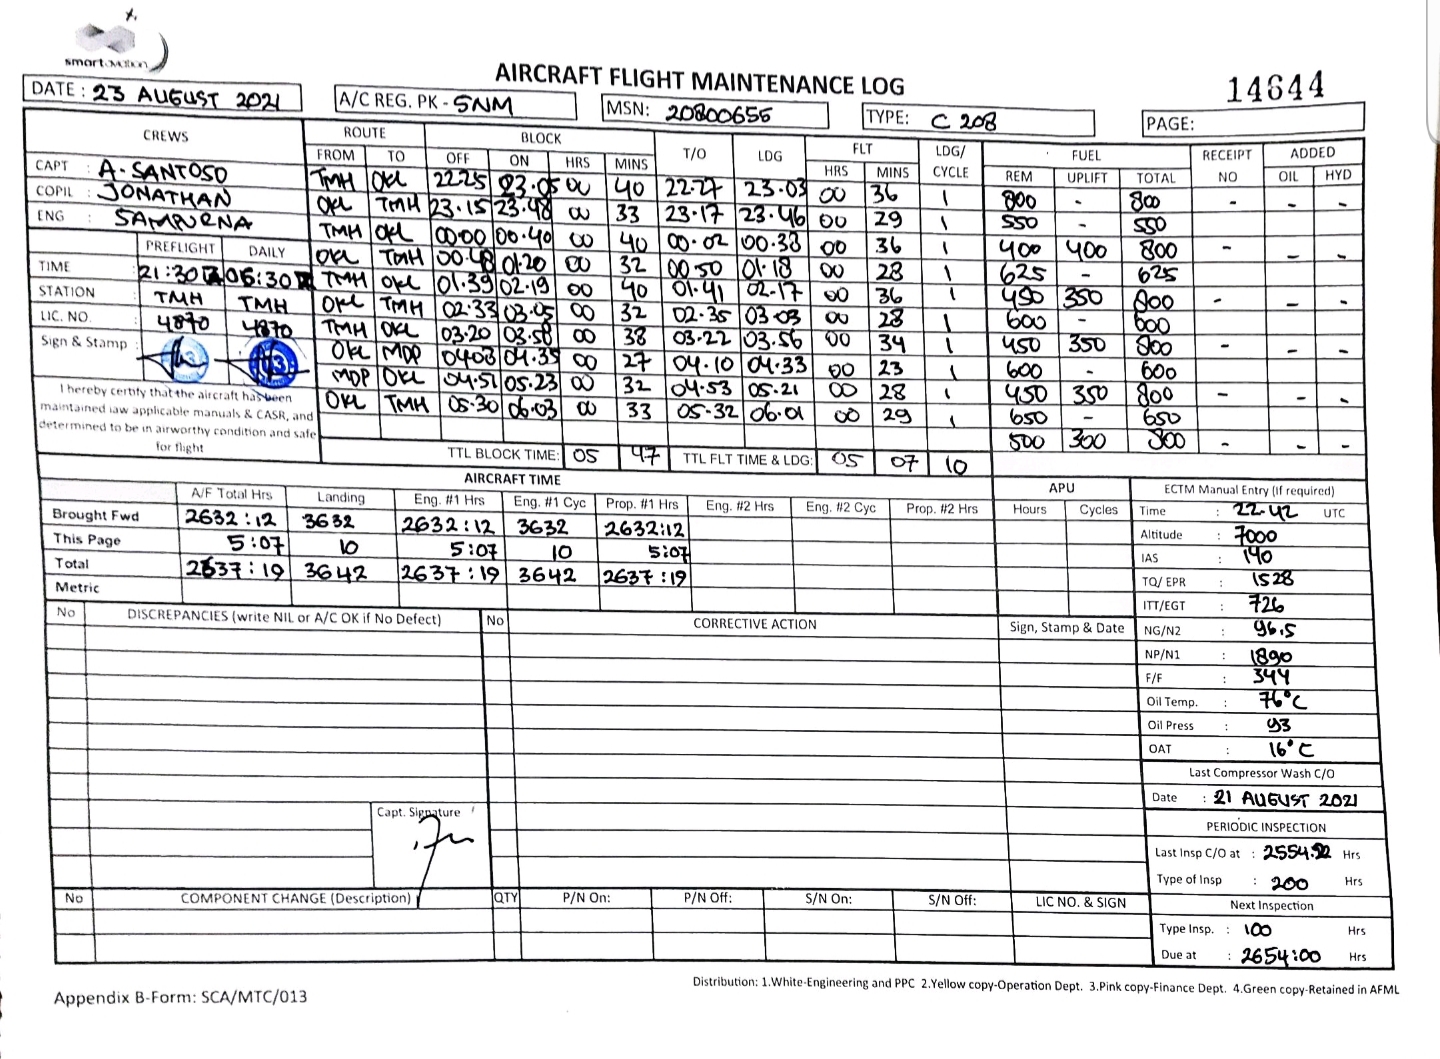 smartaviation
AIRCRAFT FLIGHT MAINTENANCE LOG
14644
DATE : 23 AUGUST 2021 A/C REG. PK - SNM MSN: 20800655 TYPE: C 208 PAGE:
CREWS ROUTE BLOCK T/O LDG FLT LDG/ CYCLE FUEL RECEIPT NO ADDED
FROM TO OFF ON HRS MINS HRS MINS REM UPLIFT TOTAL OIL HYD
CAPT : A. SANTOSO
COPIL : JONATHAN
ENG : SAMPURNA
PREFLIGHT DAILY
TIME 21:30 06:30
STATION TMH TMH
LIC. NO. 4870 4870
Sign & Stamp :
I hereby certify that the aircraft has been
maintained iaw applicable manuals & CASR, and
determined to be in airworthy condition and safe
for flight
TMH OKL 22.25 23.05 00 40 22.27 23.03 00 36 1 800 - 800 - - -
OKL TMH 23.15 23.48 00 33 23.17 23.46 00 29 1 550 - 550
TMH OKL 00.00 00.40 00 40 00.02 00.38 00 36 1 400 400 800 - - -
OKL TMH 00.48 01.20 00 32 00.50 01.18 00 28 1 625 - 625
TMH OKL 01.39 02.19 00 40 01.41 02.17 00 36 1 450 350 800 - - -
OKL TMH 02.33 03.05 00 32 02.35 03.03 00 28 1 600 - 600
TMH OKL 03.20 03.58 00 38 03.22 03.56 00 34 1 450 350 800 - - -
OKL MDP 04.08 04.35 00 27 04.10 04.33 00 23 1 600 - 600
MDP OKL 04.51 05.23 00 32 04.53 05.21 00 28 1 450 350 800 - - -
OKL TMH 05.30 06.03 00 33 05.32 06.01 00 29 1 650 - 650
500 300 800 - - -
TTL BLOCK TIME: 05 47 TTL FLT TIME & LDG: 05 07 10
AIRCRAFT TIME APU
A/F Total Hrs Landing Eng. #1 Hrs Eng. #1 Cyc Prop. #1 Hrs Eng. #2 Hrs Eng. #2 Cyc Prop. #2 Hrs Hours Cycles
Brought Fwd 2632:12 3632 2632:12 3632 2632:12
This Page 5:07 10 5:07 10 5:07
Total 2637:19 3642 2637:19 3642 2637:19
Metric
ECTM Manual Entry (If required)
Time : 22.42 UTC
Altitude : 7000
IAS : 140
TQ/ EPR : 1528
ITT/EGT : 726
NG/N2 : 96.5
NP/N1 : 1890
F/F : 344
Oil Temp. : 76°C
Oil Press : 93
OAT : 16°C
Last Compressor Wash C/O
Date : 21 AUGUST 2021
PERIODIC INSPECTION
Last Insp C/O at : Hrs
Type of Insp : 200 Hrs
Next Inspection
Type Insp. : 100 Hrs
Due at : 2654:00 Hrs
No DISCREPANCIES (write NIL or A/C OK if No Defect) No CORRECTIVE ACTION Sign, Stamp & Date
Capt. Signature
No COMPONENT CHANGE (Description) QTY P/N On: P/N Off: S/N On: S/N Off: LIC NO. & SIGN
Distribution: 1.White-Engineering and PPC 2.Yellow copy-Operation Dept. 3.Pink copy-Finance Dept. 4.Green copy-Retained in AFML
Appendix B-Form: SCA/MTC/013